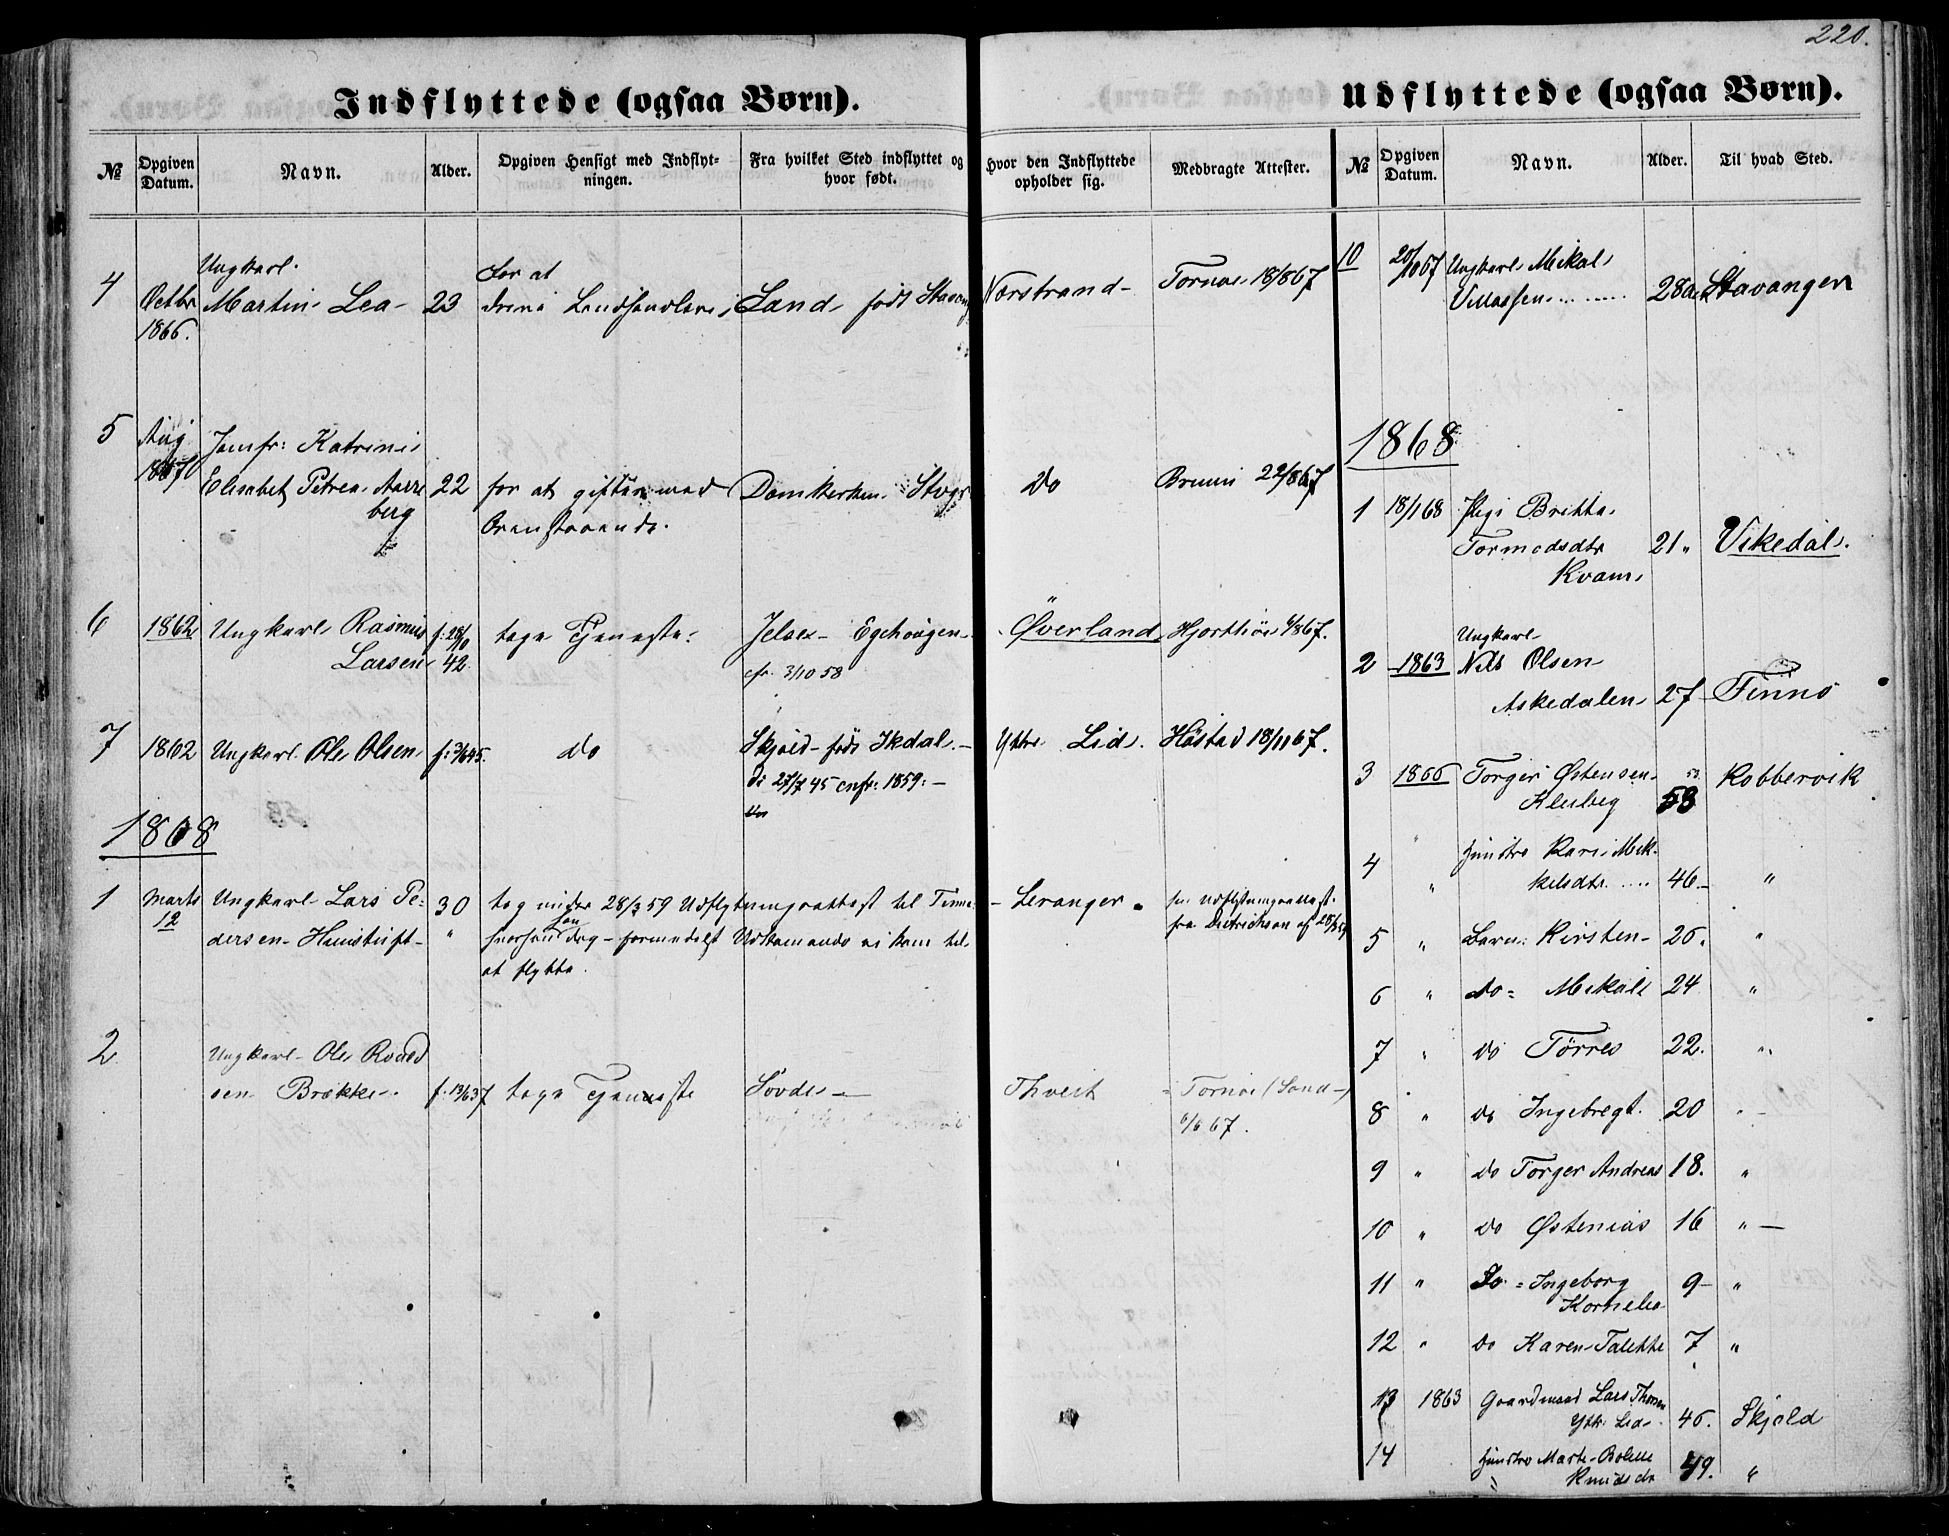 220.
Indflyttede (ogsaa Børn).
№
Opgiven Datum.
Navn.
Alder.
Opgiven Hensigt med Indflyt-
ningen.
Fra hvilket Sted indflyttet og
hvor født.
Hvor den Indflyttede
opholder sig.
Medbragte Attester.
4
Octbr
1866.
Ungkarl
Martin Lea
23
for at
drive Landhandleri
Sand født Stavang
Nærstrand
Tornøe 18/8 67
5
Aug
1867
Jomfr: Katrine
Elisabet Petrea Aarre
berg
22
for at giftes med
Ovenstaaende.
Domkirken Stvgr
Do
Bruun 22/8 67
6
1862
Ungkarl Rasmus
Larsen
f: 28/10
42
tage Tjeneste
Jelse - Egehougen
cfr. 3/10 58
Øverland
Hjorthøi 4/8 67.
7
1862
Ungkarl Ole Olsen
f: 2/6 45.
do
Skjold - født Ikdal
D: 27/7 45 cnfr: 1859:
Yttre Lid.
Høstad 18/11 67.
1868
1
Marts
12
Ungkarl Lars Pe=
dersen
30
"
tog under 28/3 59 Udflytningsattest til Finnø
han dog formedelst Udkommando ei kom til
at flytte.
Leranger
fra Dietrichson af 28/3 59
2
Ungkarl Ole Roald
sen Brække
f. 13/6 37
tage Tjeneste
Søvde
Thveit
Tornøe (Sand)
6/6 67.
Udflyttede (ogsaa Børn).
№
Opgiven Datum.
Navn.
Alder.
Til hvad Sted.
10
20/10 67
Ungkarl Mikal
Villassen
28 a
Stavanger
1868
1
18/1 68
Pige Britha
Tormodsdtr
Kvam
21 "
Vikedal.
2
1863
Ungkarl
Nils Olsen
Askedalen
27
Finnø
3
1866
Torger Østensen
Kluberg
53
Kobbervik
4
"
Hustro Kari Mik-
kelsdtr
46
"
5
"
Barn: Kirsten
26.
"
6
"
do= Mikal
24
"
7
"
do Tørres
22.
"
8
"
do Ingebregt.
20
"
9
"
do Torger Andreas
18.
"
10
"
do Østenias
16
"
11
"
Do = Ingeborg
Kornelia
9
"
12
"
do Karen Talette
7
"
13
1863
Gaardmand Lars Thorsen
Ytr. Lid
46.
Skjold
14
Hustro Marte Bolette
Knudsdr
49.
"